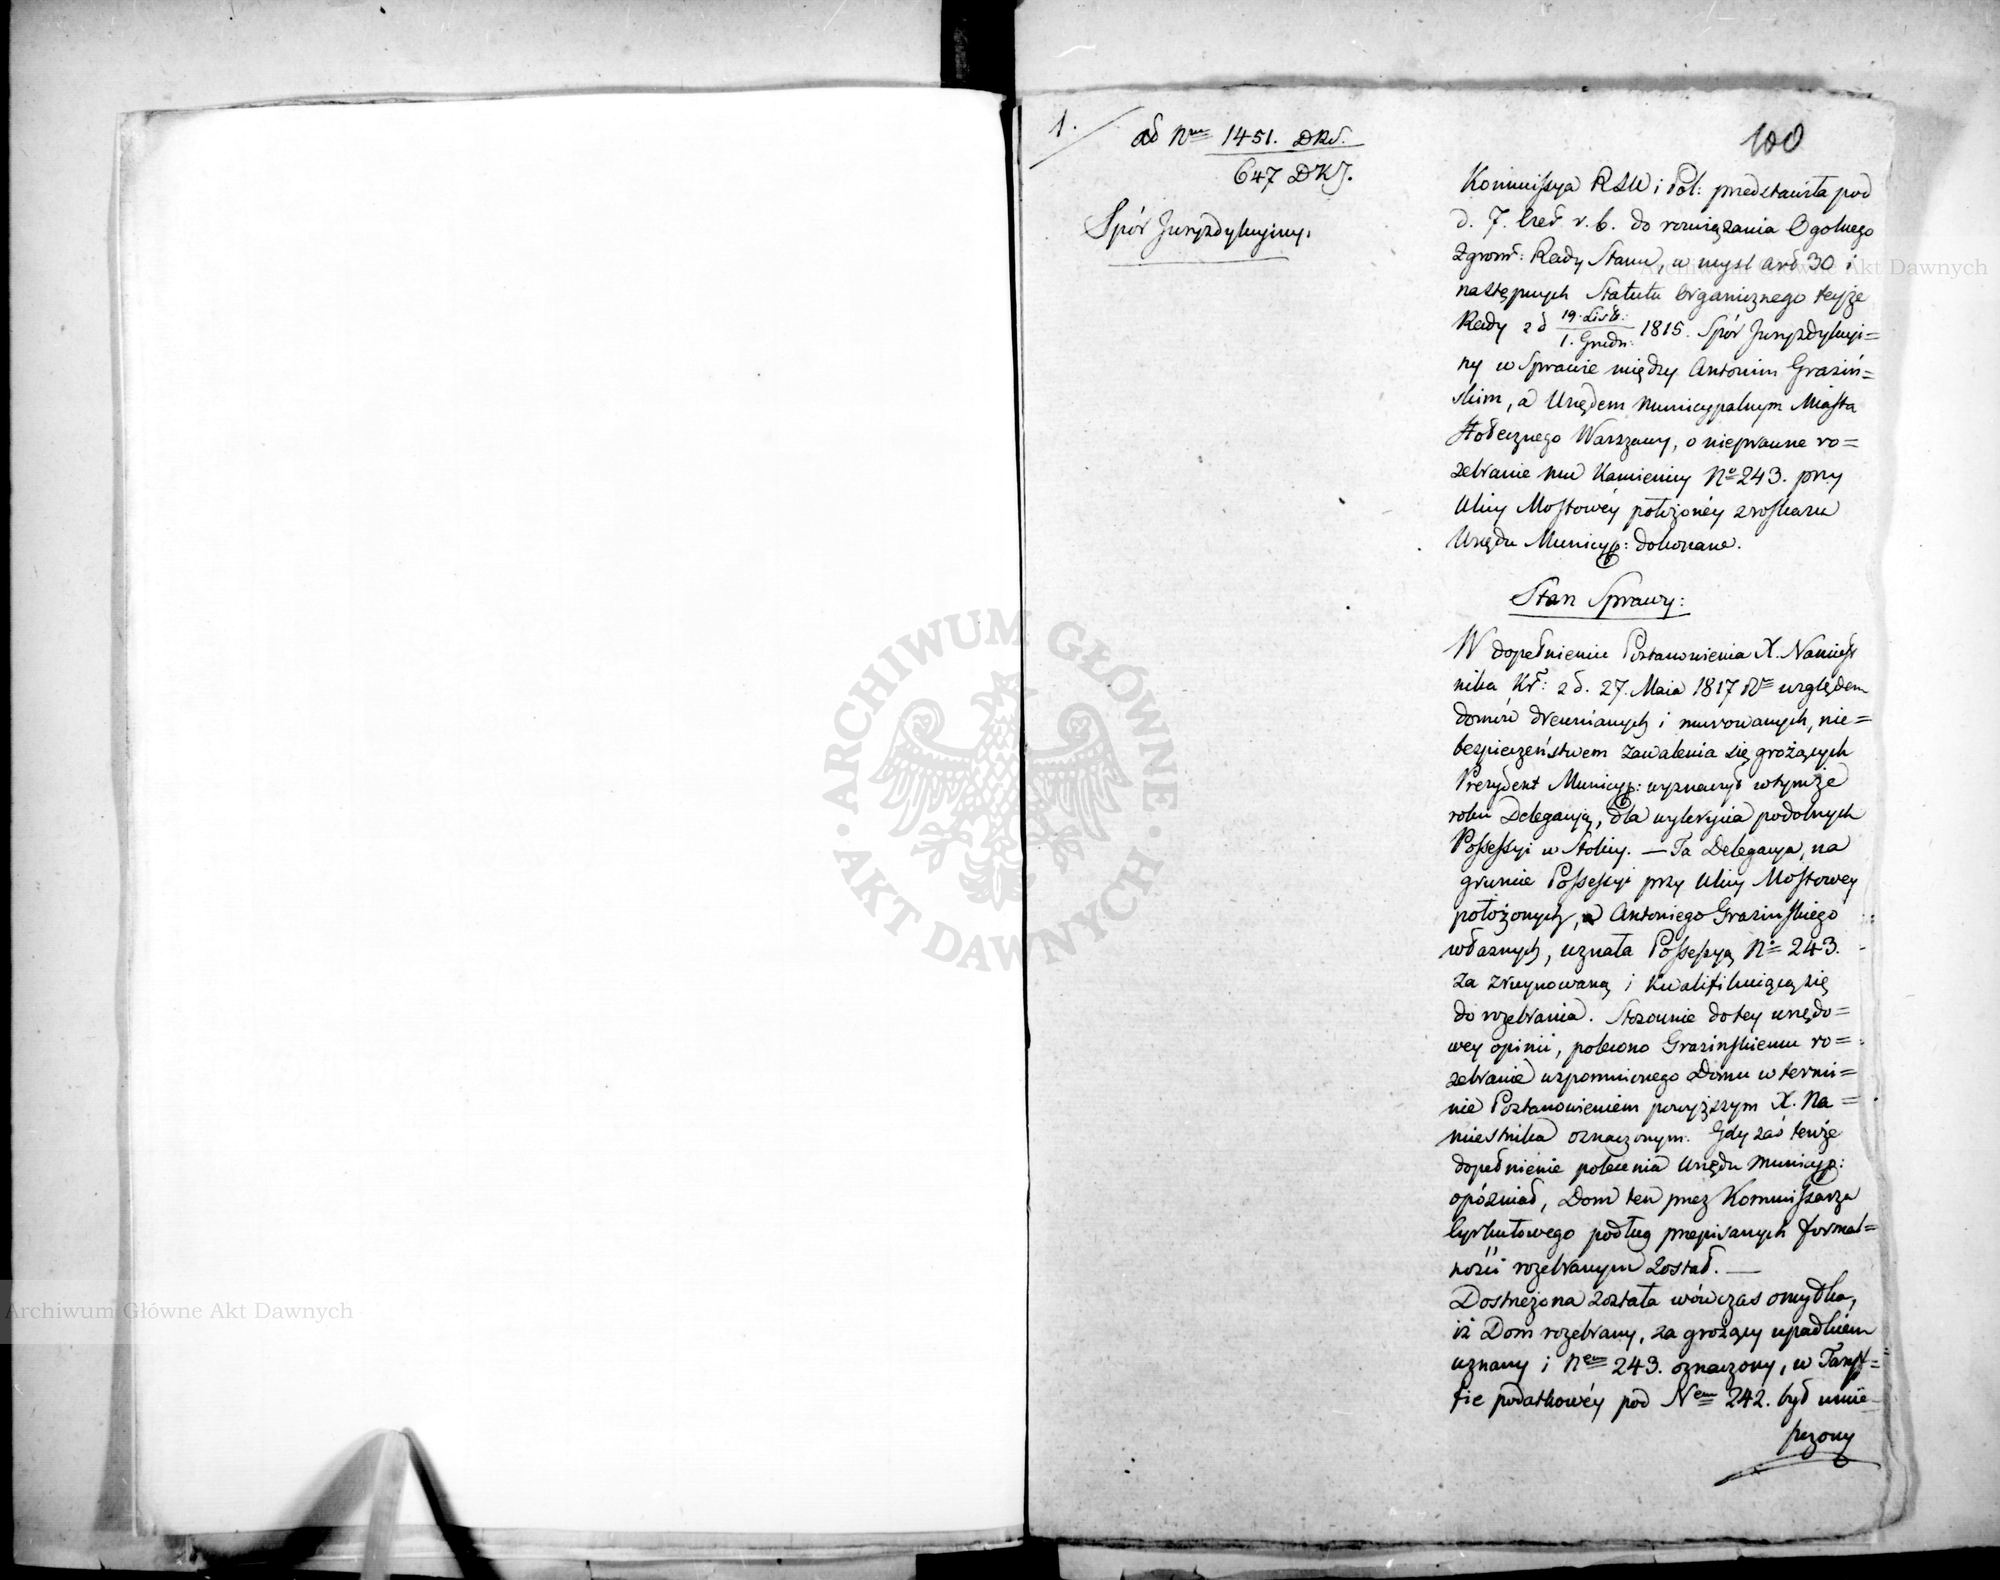 1.
ad Nrm 1451. DRS.
647 DKJ.
Spór Juryzdykcyiny.
100
Kommissya RSW i Pol: przedstawiła pod
d. 7. Czer. r. b. do rozwiązania Ogolnego
Zgrom: Rady Stanu, w mysl art 30 i
następnych Statutu organicznego teyże
Rady z d 19. List: / 1. Grudn: 1815. Spór Juryzdykcyi=
ny w Sprawie między Antonim Grasiń=
skim, a Urzędem Municypalnym Miasta
Stołecznego Warszawy, o nieprawne ro=
zebranie mu Kamienicy No 243. przy
Ulicy Mostowéy położonéy z roskazu
Urzędu Municyp: dokonane.
Stan Sprawy:
W dopełnieniu Postanowienia X. Namiest
nika Kr: z d. 27. Maia 1817 Rn względem
domów drewnianych i murowanych, nie=
bezpieczeństwem zawalenia się grożących
Prezydent Municyp: wyznaczył w tymże
roku Delegacyą, dla wykrycia podobnych
Possessyi w Stolicy. — Ta Delegacya, na
gruncie Possessyi przy Ulicy Mostowey
położonych, a Antoniego Grasinskiego
własnych, uznała Possessyą No 243.
za zruynowaną i kwalifikuiącą się
do rozebrania. Stosownie do tey urzędo=
wey opinii, polecono Grasinskiemu ro=
zebranie wspomnionego Domu w termi=
nie Postanowieniem powyższym X. Na=
miestnika oznaczonym. Gdy zaś tenże
dopełnienie polecenia Urzędu Municyp:
opóźniał, Dom ten przez Kommissarza
Cyrkułowego podług przepisanych formal=
ności rozebranym został. —
Dostrzeżona została wówczas omyłka,
iż Dom rozebrany, za grożący upadkiem
uznany i Nem 243. oznaczony, w Taryf=
fie podatkowéy pod Nem 242. był umie=
szczony
Archiwum Główne Akt Dawnych
Archiwum Główne Akt Dawnych
ARCHIWUM GŁÓWNE · AKT DAWNYCH ·